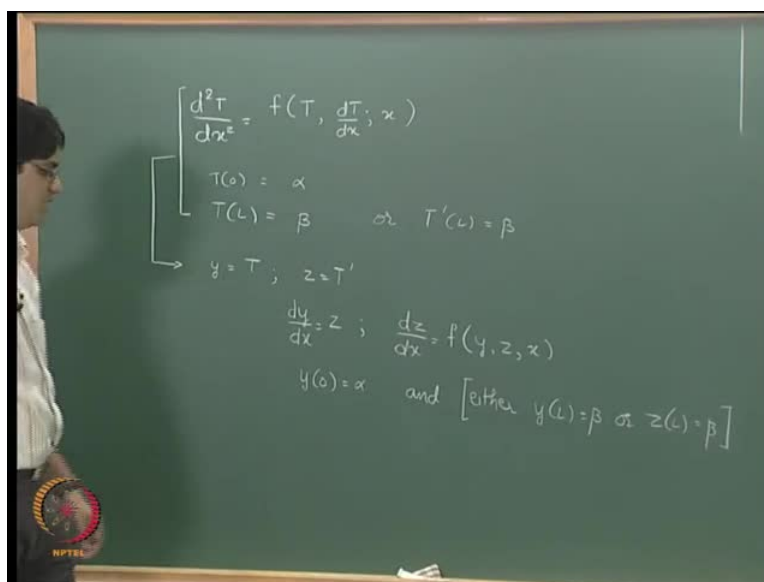 d²T/dx² = f(T, dT/dx; x)
T(0) = α
T(L) = β or T'(L) = β
y = T ; z = T'
dy/dx = z ; dz/dx = f(y, z, x)
y(0) = α and [either y(L) = β or z(L) = β]
NPTEL